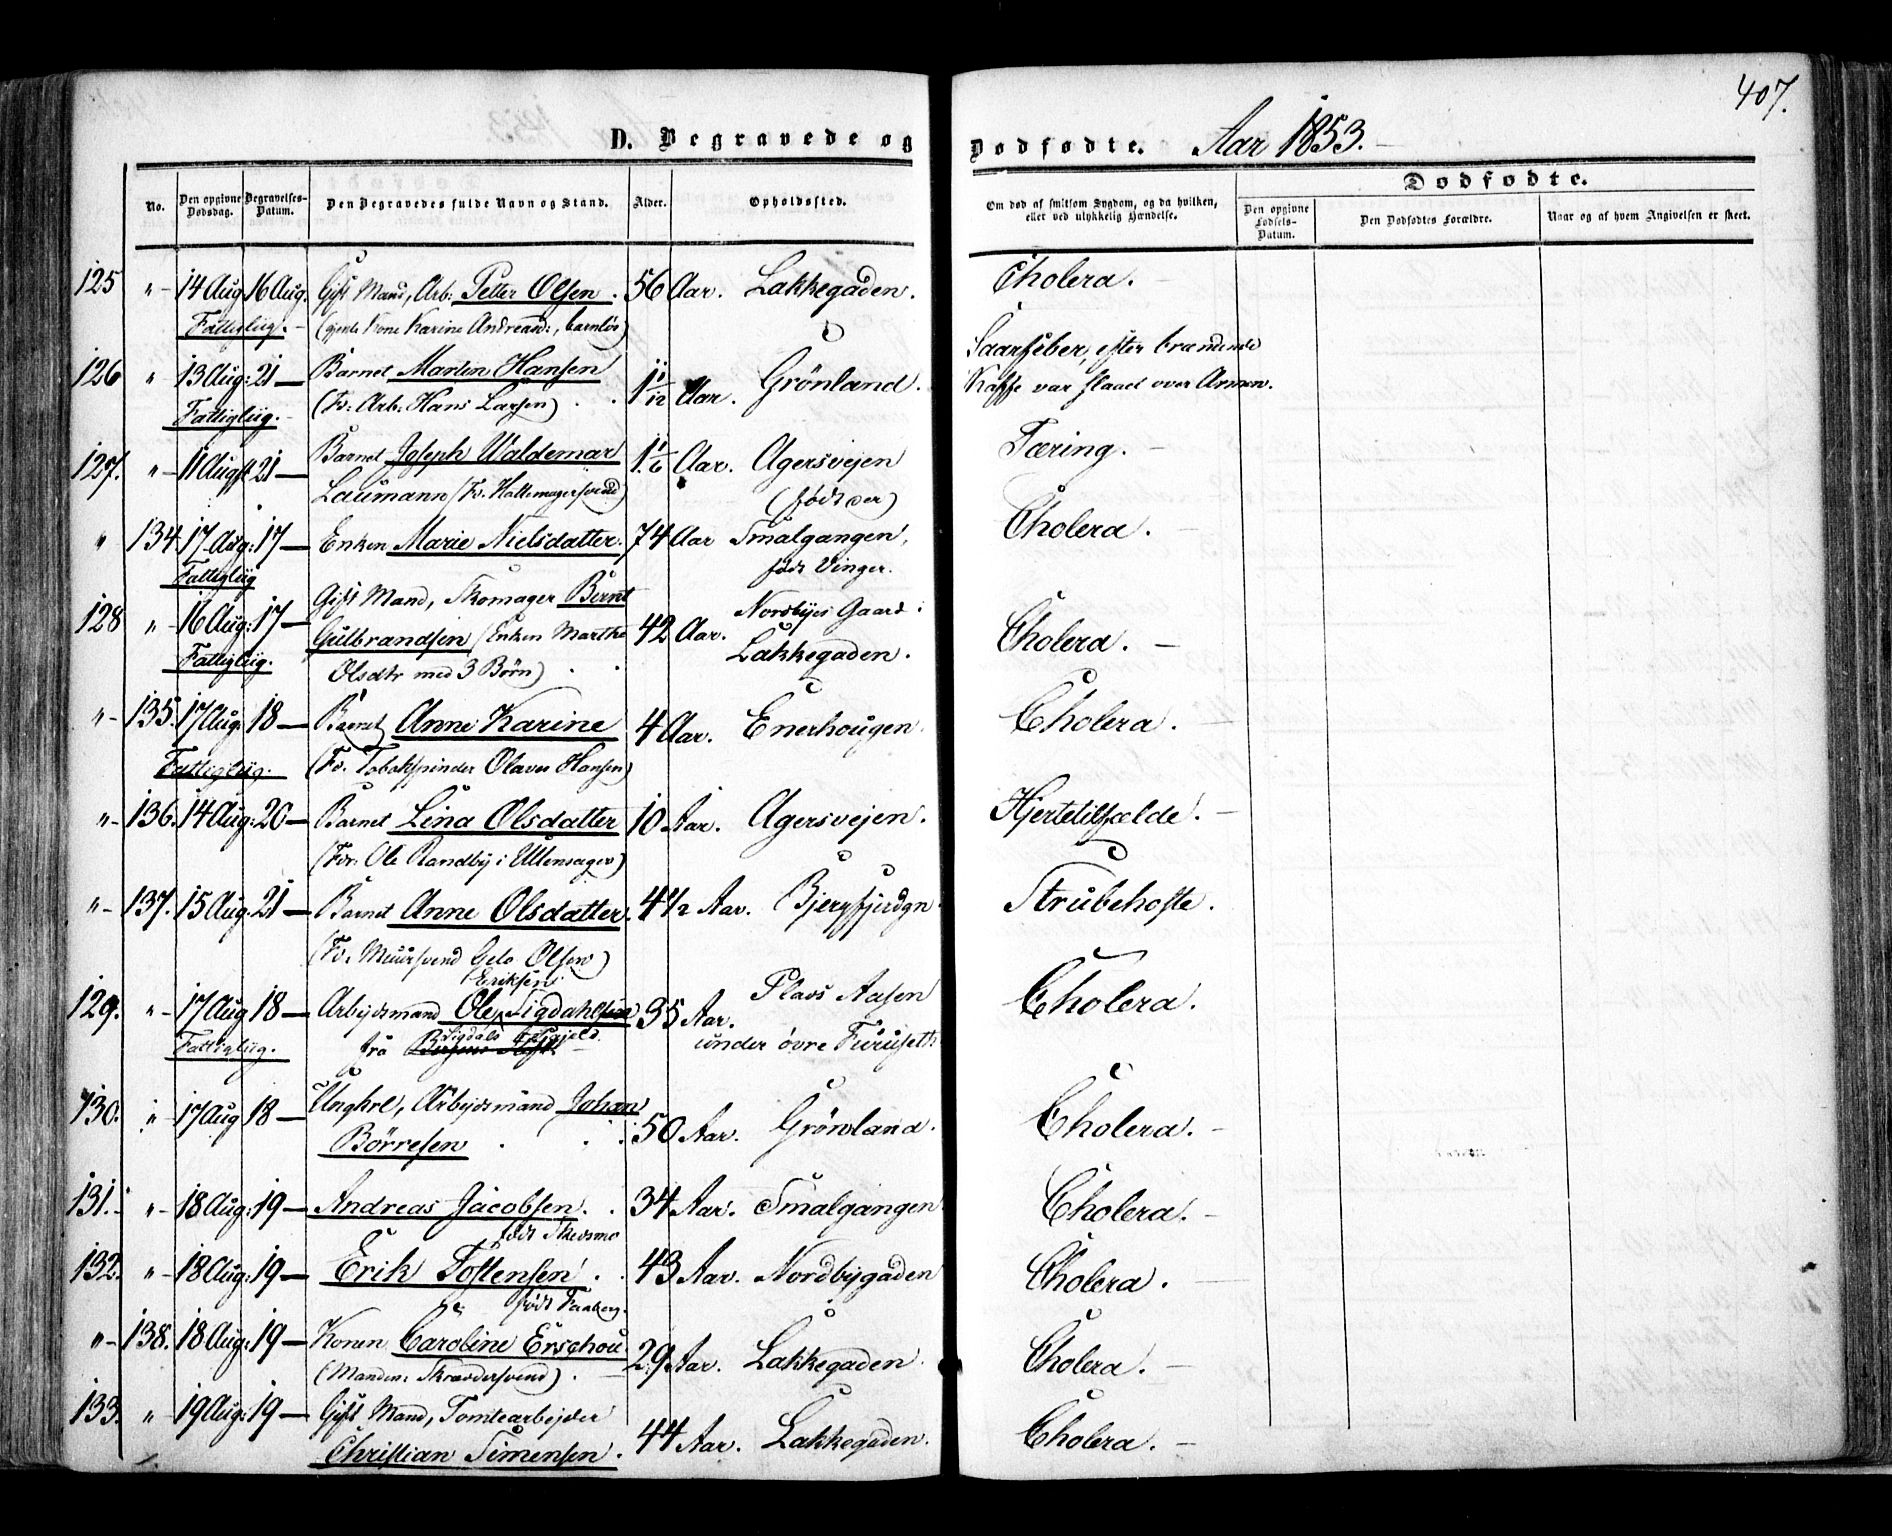 407.
D. Begravede og Dødfødte. Aar 1853.
No. Den opgivne Dødsdag. Begravelses-Datum. Den Begravedes fulde Navn og Stand. Alder. Opholdssted. Om død af smitsom Sygdom, og da hvilken, eller ved ulykkelig Hændelse.
Dødfødte.
Den opgivne Fødsels-Datum. Den Dødfødtes Forældre. Naar og af hvem Angivelsen er skeet.
125 " 14 Aug 16 Aug. Gift Mand, Arb: Petter Olsen. 56 Aar. Lakkegaden. Cholera.
Fattigliig. (Kone Karine Andreasd:, barnløs)
126 " 13 Aug: 21 Barnet Martin Hansen 1 11/12 Aar. Grønland. Saarfeber, efter brændende
Fattigliig. (Fr: Arb: Hans Larsen) Kaffe var slaaet over Armen.
127. " 11 Augst 21 Barnet Joseph Waldemar 1 1/6 Aar. Agersvejen Tæring.
Laumann (Fr. Hattemagersvend) (født der)
" 134. 17 Aug: 17 Enken Marie Nielsdatter. 74 Aar Smalgangen, Cholera.
Fattigliig født Vinger.
128 " 16 Aug: 17 Gift Mand, Skomager Bernt 42 Aar. Nordbyes Gaard i Cholera.
Fattigliig. Gulbrandsen (Enken Marthe Lakkegaden.
Olsdtr med 3 Børn)
" 135. 17 Aug: 18 Barnet Anne Karine 4 Aar. Enerhougen. Cholera.
Fattigliig. (Fr. Tobakspinder Olaves Hansen)
" 136. 14 Aug: 20 Barnet Lina Olsdatter 10 Aar. Agersvejen. Hjertetilfælde.
(Fr: Ole Randby i Ullensager)
" 137. 15 Aug. 21 Barnet Anne Olsdatter. 4 1/2 Aar. Bjergfjerdgn. Strubehoste.
(Fr. Muursvend Olsen)
129. " 17 Aug 18 Arbejdsmand Ole Eriksen Sigdahlsen 35 Aar. Plads Aasen Cholera.
Fattigliig. fra Sigdals Prgjeld. under øvre Furuseth
130. " 17 Aug 18 Ungkrl, Arbejdsmand Johan 50 Aar. Grønland. Cholera.
Børresen
131. " 18 Aug: 19 Andreas Jacobsen. 34 Aar. Smalgangen Cholera.
født Skedsmo
132. " 18 Aug: 19 Erik Tostensen. 43 Aar. Nordbygaden Cholera.
født Faaberg.
" 138. 18 Aug: 19 Konen Caroline Erschou 29 Aar. Lakkegaden. Cholera.
(Manden: Skræddersvend).
133. " 19 Aug: 19 Gift Mand, Tomtearbejder 44 Aar. Lakkegaden. Cholera.
Christian Simensen.